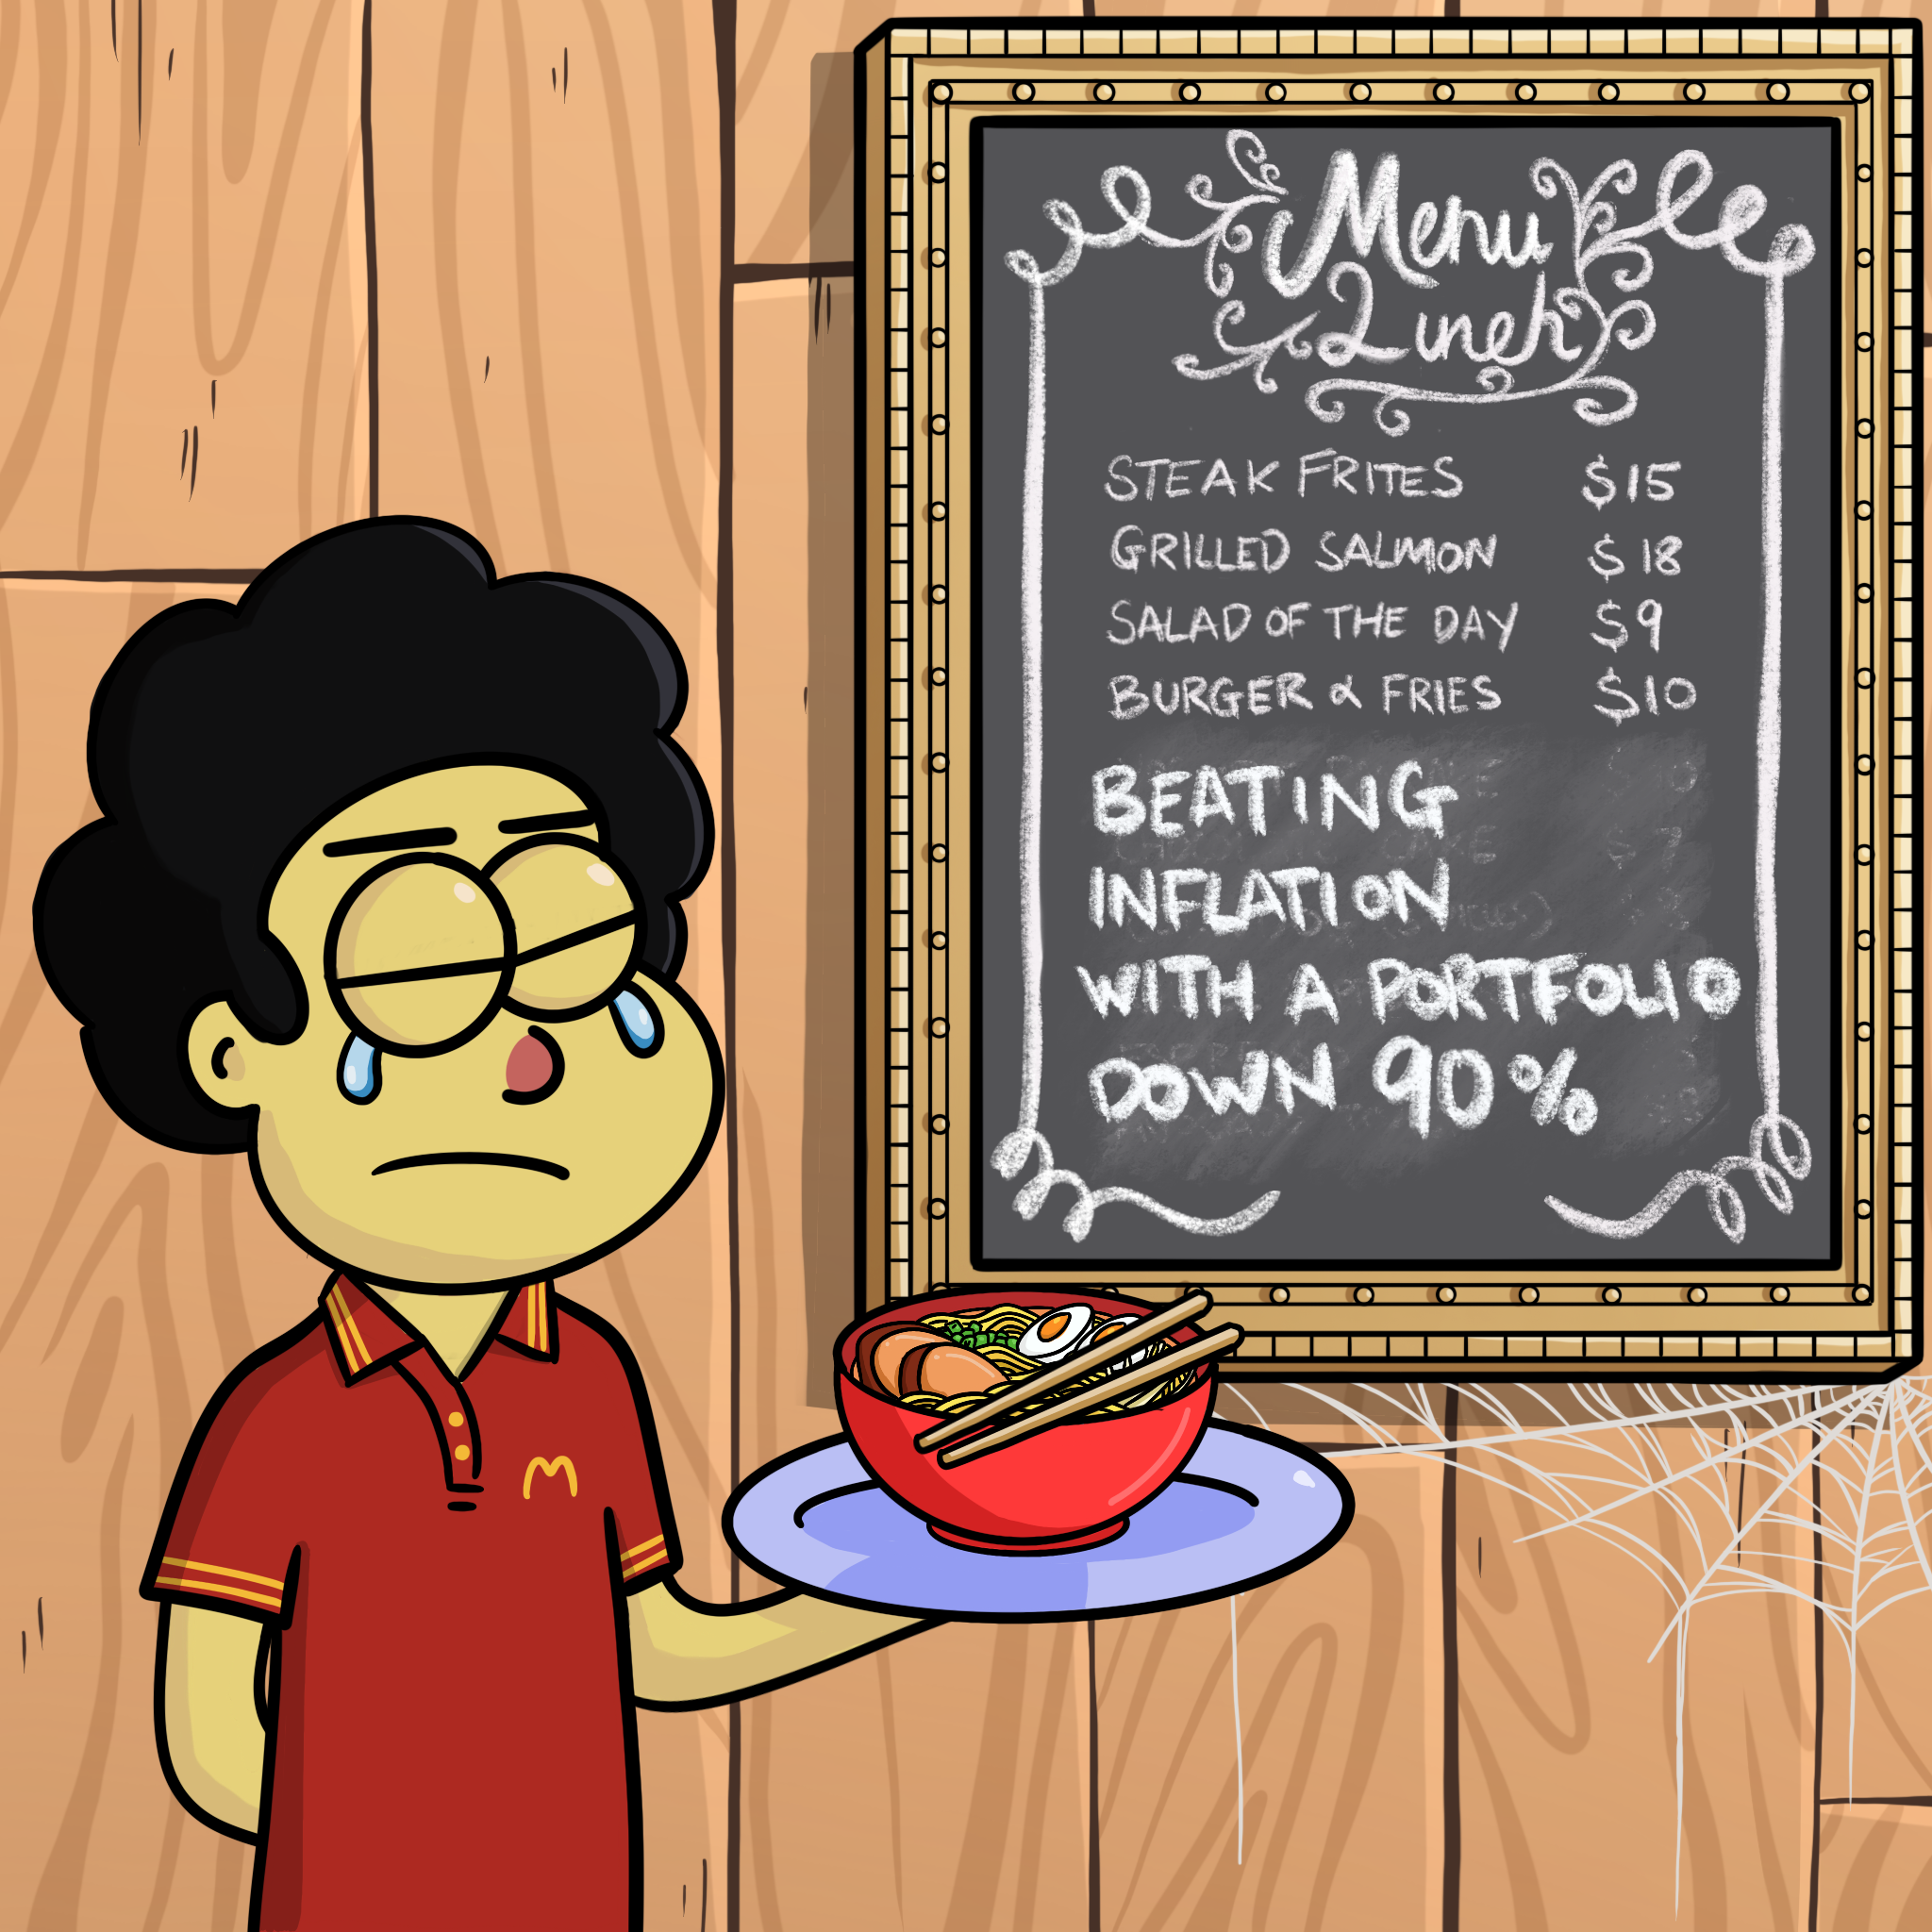 Menu
Lunch
STEAK FRITES $15
GRILLED SALMON $18
SALAD OF THE DAY $9
BURGER & FRIES $10
BEATING
INFLATION
WITH A PORTFOLIO
DOWN 90%
M